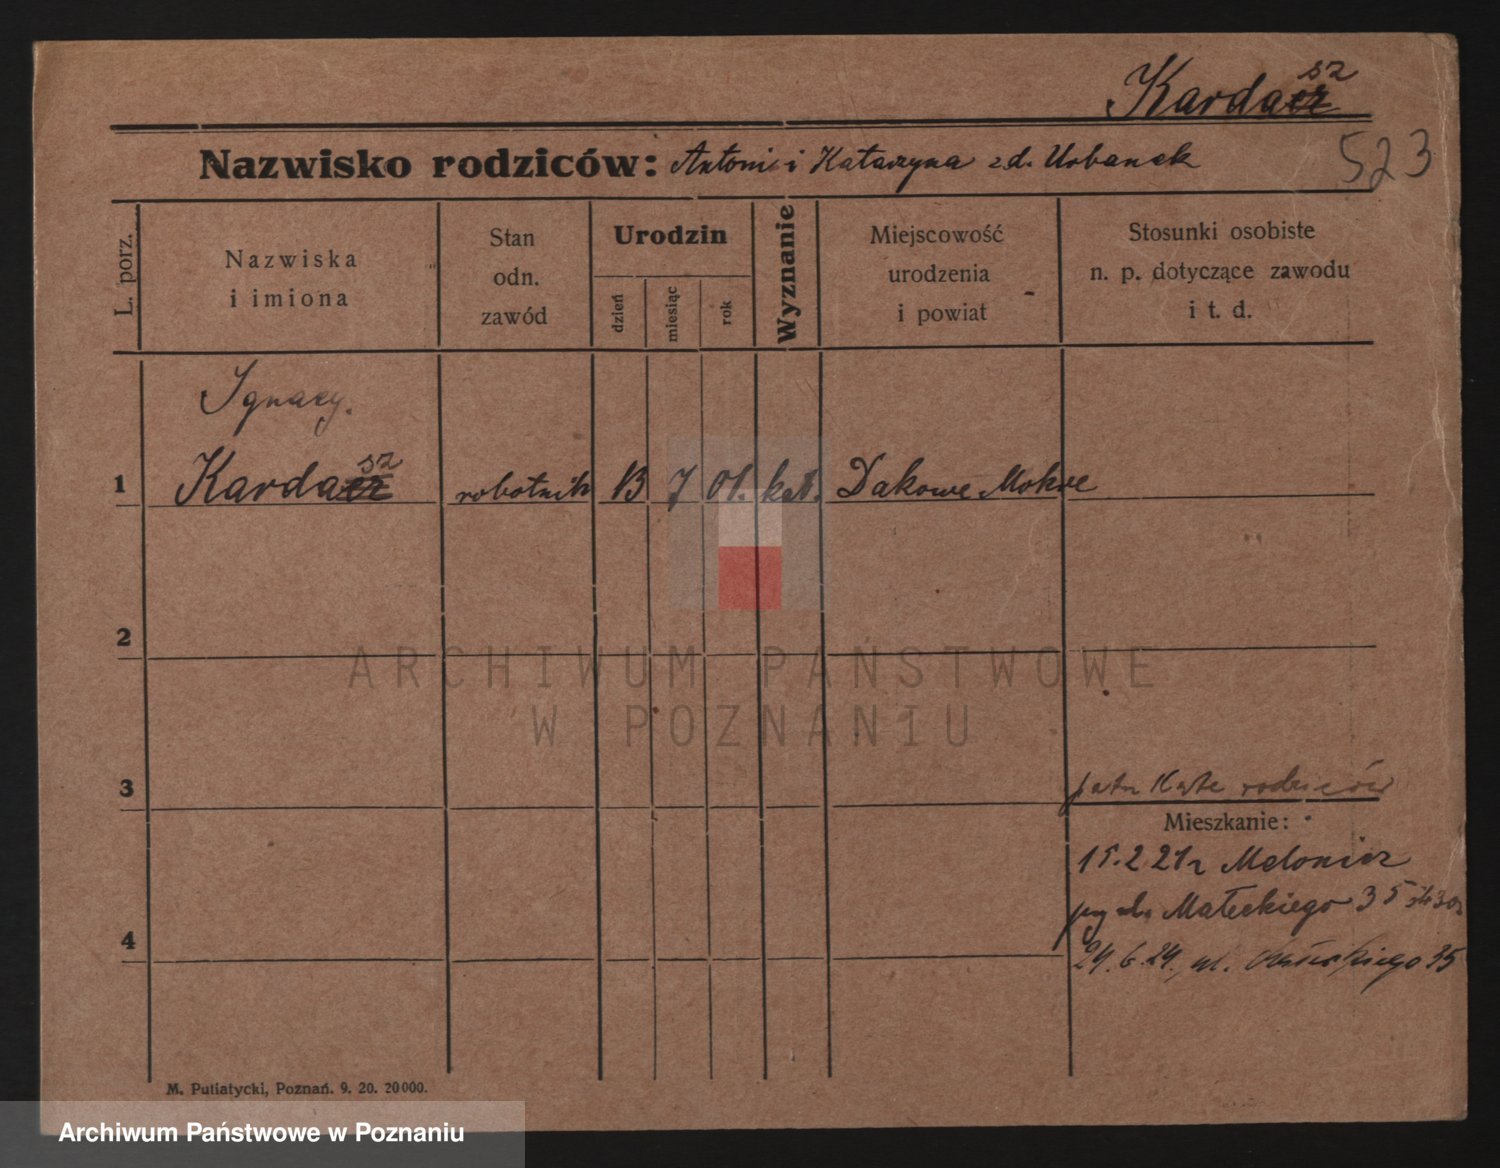 sz
Kardacz
523
Nazwisko rodziców: Antoni i Katarzyna zd. Urbanek
L. porz.
Nazwiska
i imiona
Stan
odn.
zawód
Urodzin
dzień
miesiąc
rok
Wyznanie
Miejscowość
urodzenia
i powiat
Stosunki osobiste
n. p. dotyczące zawodu
i t. d.
Ignacy.
sz
1 Kardacz robotnik 13 7 01. kat. Dakowe Mokre
ARCHIWUM PAŃSTWOWE
W POZNANIU
2
3
patrz Kartę rodziców
Mieszkanie:
15.2 21 r
Małeckiego 35
4
24.6.24. ul. 35
M. Putiatycki, Poznań. 9. 20. 20000.
Archiwum Państwowe w Poznaniu